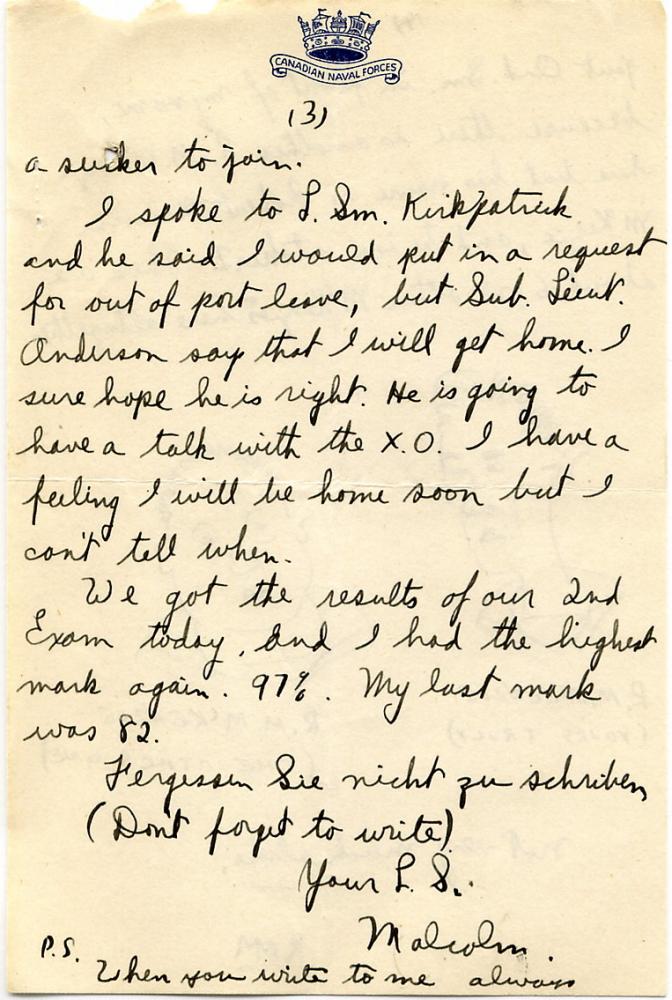 CANADIAN NAVAL FORCES
(3)
a sucker to join.
I spoke to L. Sm. Kirkpatrick
and he said I would put in a request
for out of port leave, but Sub. Lieut.
Anderson say that I will get home. I
sure hope he is right. He is going to
have a talk with the X.O. I have a
feeling I will be home soon but I
can't tell when.
We got the results of our 2nd
Exam today, and I had the highest
mark again. 97%. My last mark
was 82.
Fergessen Sie nicht zu schriben
(Don't forget to write)
Your L. S.
Malcolm.
P.S.
When you write to me always